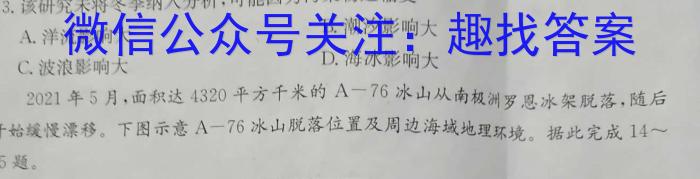 3. 该研究未将冬季纳入分析,可能因为
A. 洋流影响大 B. 潮汐影响大
微信公众号关注：趣找答案
C. 波浪影响大 D. 海冰影响大
2021年5月,面积达4320平方千米的A－76冰山从南极洲罗恩冰架脱落,随后
开始缓慢漂移。下图示意A－76冰山脱落位置及周边海域地理环境。据此完成14～
5题。